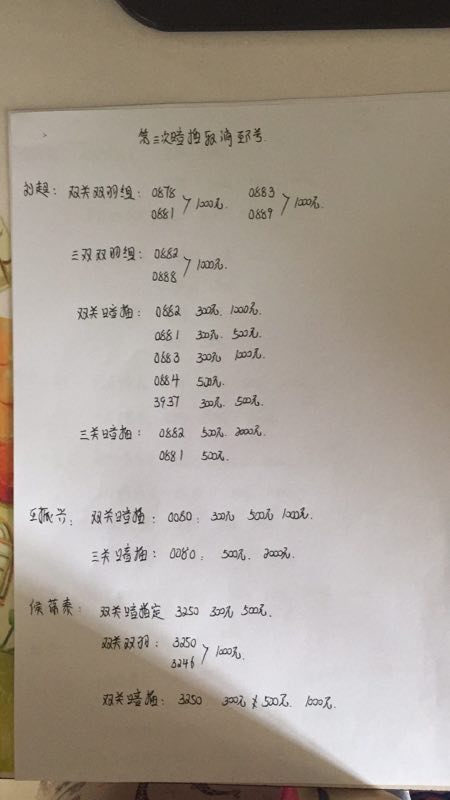 第三次暗插取消环号
刘超：双关双羽组：0878 0883
0881 >1000元 0889 >1000元.
三双双羽组：0882
0888 >1000元.
双关暗插：0882 300元. 1000元.
0881 300元. 500元.
0883 300元 1000元.
0884 500元.
3937 300元. 500元.
三关暗插：0882 500元. 2000元.
0881 500元.
王振兴：双关暗插：0080：300元 500元 1000元.
三关暗插：0080：500元. 2000元.
双关暗指定 3250 300元 500元.
双关双羽：3250
3246 >1000元.
双关暗插：3250 300元 500元. 1000元.